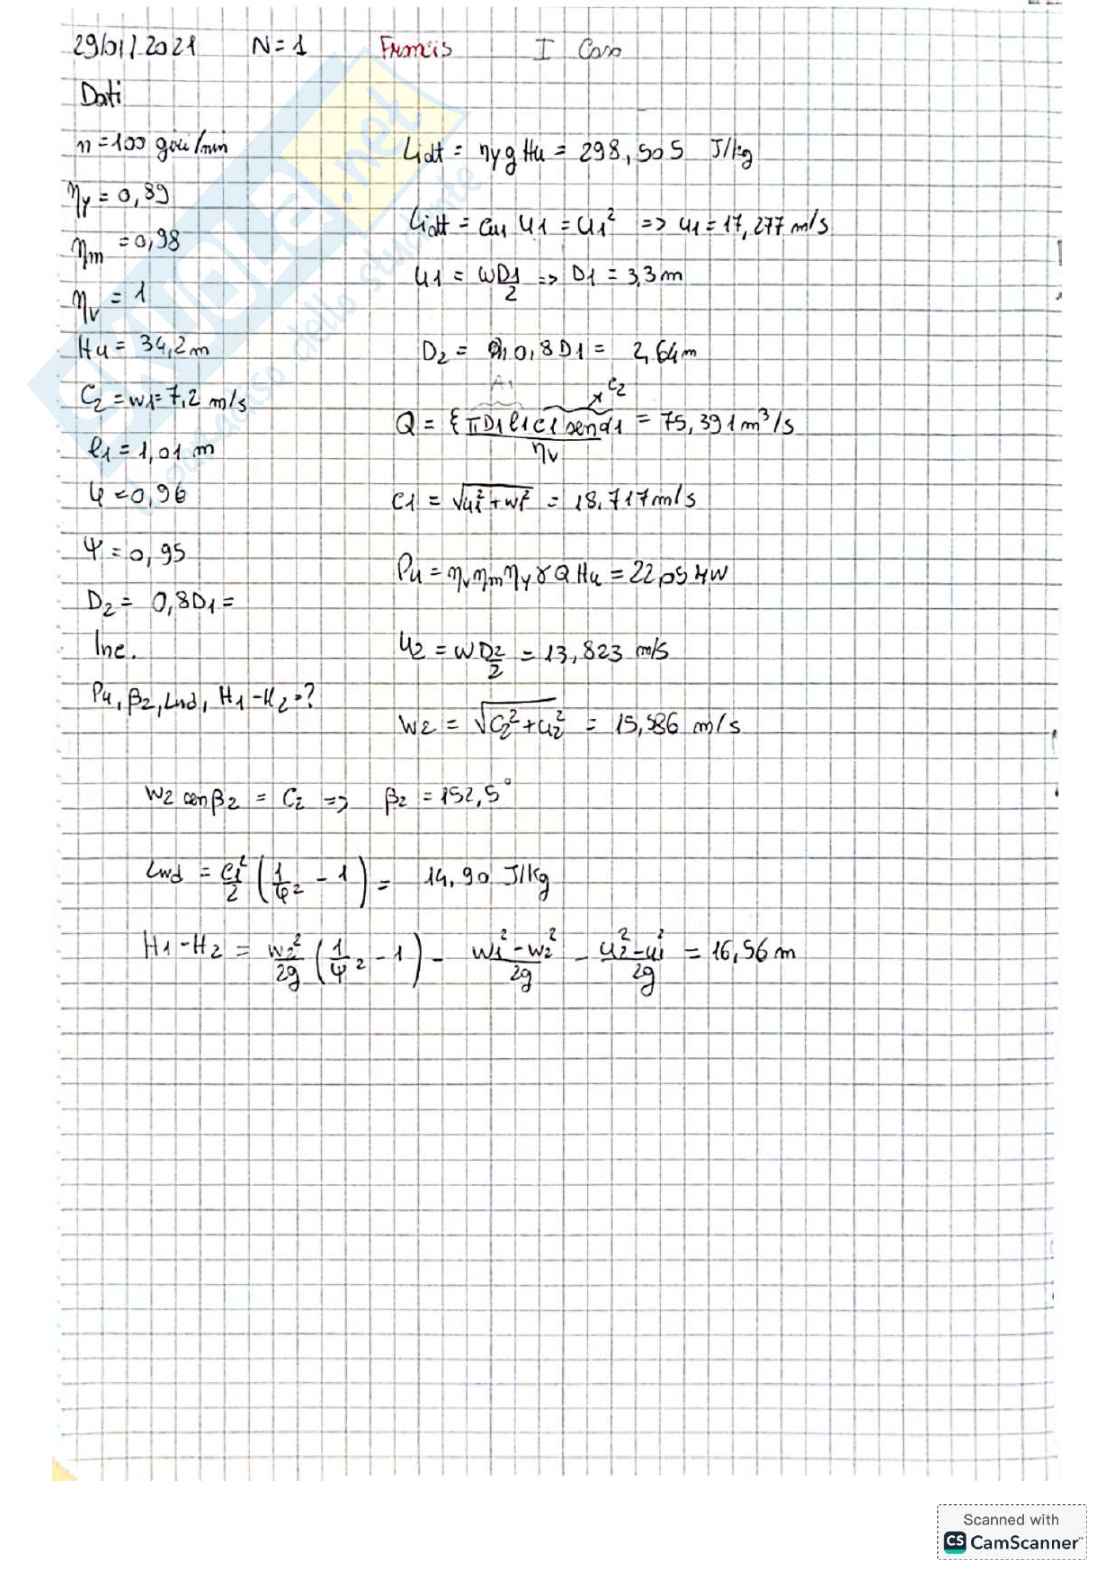 29/01/2021 N=1 Francis I Caso
Dati
n=100 giri/min
ηy = 0,89
ηm = 0,98
ηv = 1
Hu = 34,2 m
C2 = w1 = 7,2 m/s
l1 = 1,01 m
φ = 0,96
ψ = 0,95
D2 = 0,8D1 =
Inc.
Pu, β2, Lwd, H1-H2 = ?
Lidtt = ηy g Hu = 298,505 J/kg
Lidtt = cu1 u1 = u1² => u1 = 17,277 m/s
u1 = ωD1/2 => D1 = 3,3 m
D2 = 0,8D1 = 2,64 m
A1 C2
Q = ξ πD1 l1 c1 senα1 / ηv = 75,391 m³/s
C1 = √u1²+w1² = 18,717 m/s
Pu = ηv ηm ηy γ Q Hu = 22,05 MW
u2 = ω D2/2 = 13,823 m/s
W2 = √C2²+u2² = 15,586 m/s
W2 senβ2 = C2 => β2 = 152,5°
Lwd = C1²/2 (1/φ² - 1) = 14,90 J/kg
H1-H2 = w2²/2g (1/ψ² - 1) - w1²-w2²/2g - u2²-u1²/2g = 16,56 m
skuola.net
paradiso dello studente
Scanned with
CS CamScanner